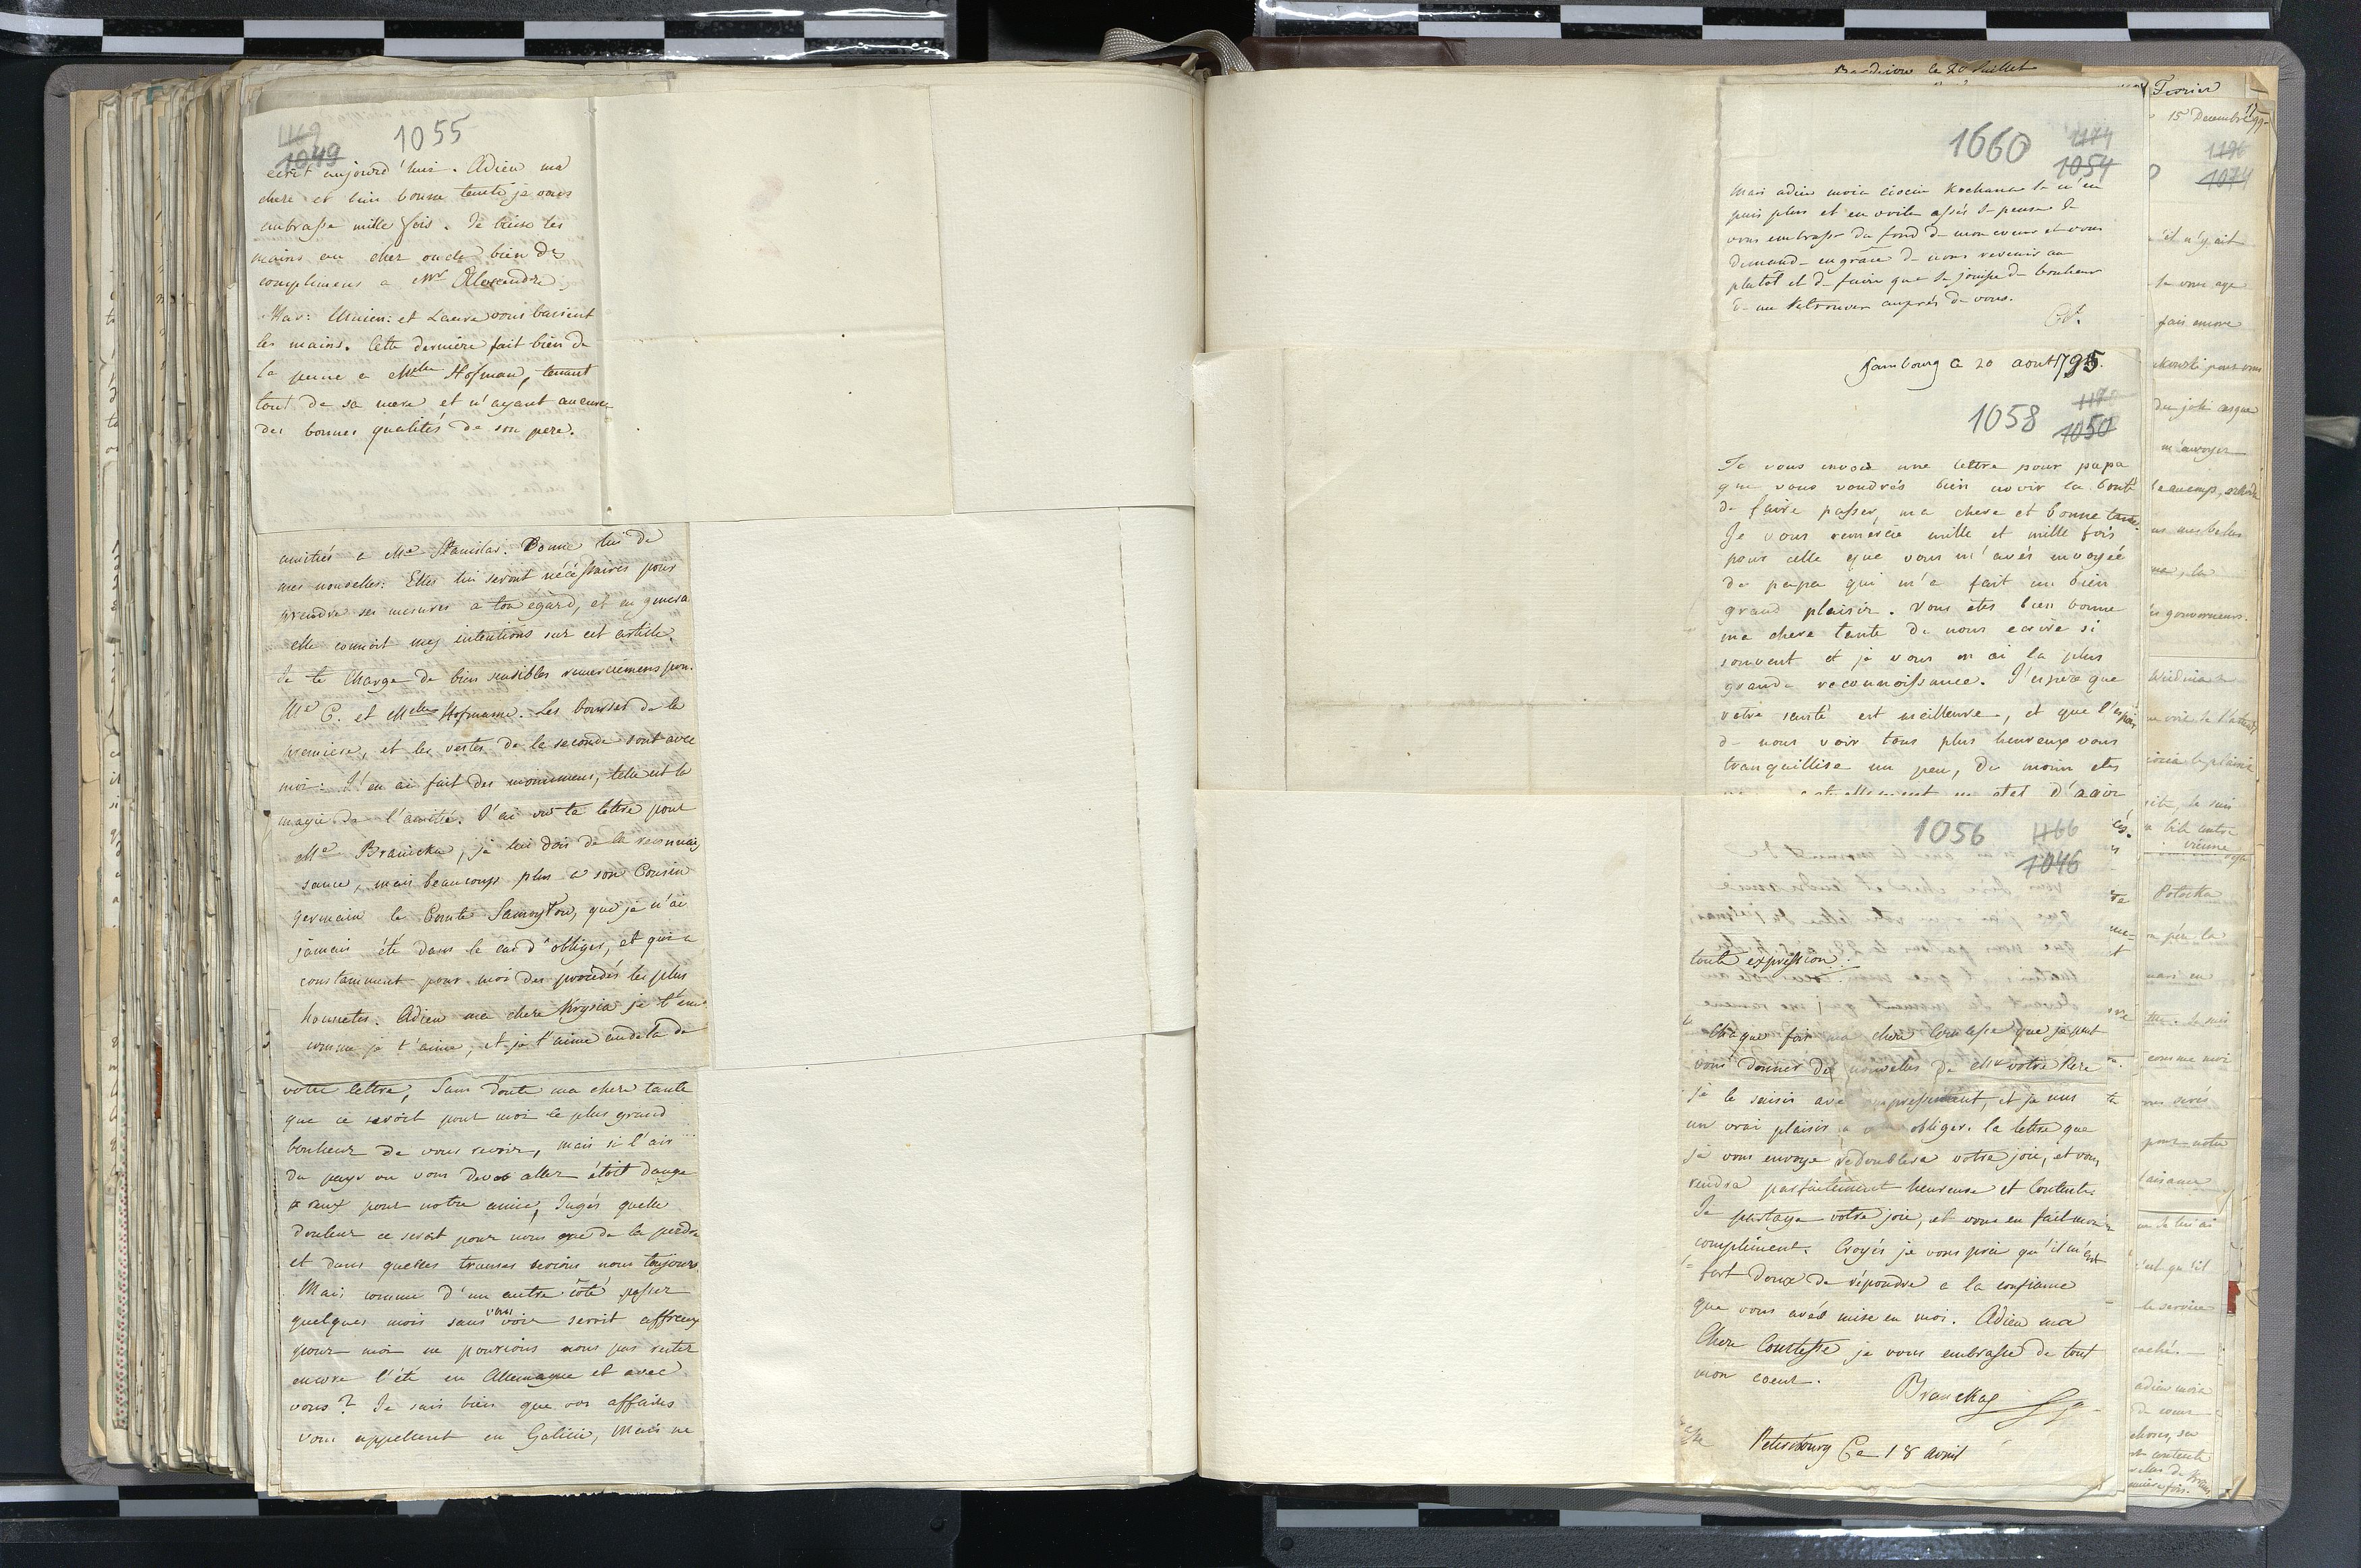 1169
1049
1055
écrit aujourd'hui. Adieu ma
chere et bien bonne tante je vous
embrasse mille fois. Je baise les
mains au cher oncle bien des
complimens a Mr Alexandre,
et Laure vous baisent
les mains. Cette derniere fait bien de
la peine a Melle Hofman, tenant
tout de sa mere et n'ayant aucunes
des bonnes qualités de son pere.
amitiés a Me Stanislas. Donne lui de
mes nouvelles: Elles lui seront nécéssaires pour
prendre ses mesures a ton egard, et en general
elle connoit mes intentions sur cet article.
Je te charge de bien sensibles remerciemens pour
Me C. et Melle Hofmann. Les bourses de la
premiere, et les vestes de la seconde sont avec
moi. J'en ai fait des monumens, telle est la
magie de l'amitié. J'ai vu ta lettre pour
Me Branicka, je lui dois de la reconnais
sance, mais beaucoup plus a son Cousin
germain le Comte Samoyłow, que je n'ai
jamais été dans le cas d'obliger, et qui a
constamment pour moi des procédés les plus
honnetes. Adieu ma chere Krysia je t'em
comme je t'aime, et je t'aime audela de
votre lettre, Sans doute ma chere tante
que ce seroit pour moi le plus grand
bonheur de vous revoir, mais si l'air
du pays ou vous devez aller étoit dange
reux pour notre amie, Jugés quelle
douleur ce seroit pour nous que de la perdre
et dans quelles transes serions nous toujours
Mais comme d'un autre côté passer
quelques mois sans vous voir seroit affreux
pour moi ne pourions nous pas rester
encore l'été en Allemagne et avec
vous? Je sais bien que vos affaires
vous appellent en Galicie, Mais ne
Bardiow le 20 Juillet
1660
1174
1054
Mais adieu moia ciocia Kochana Je n'en
puis plus et en voila assés Je pense Je
vous embrasse du fond de mon coeur et vous
demande en grace de nous revenir au
plutôt et de faire que Je jouisse du bonheur
de me retrouver auprés de vous.
Hambourg ce 20 aout 1795.
1058
1050
Je vous envoie une lettre pour papa
que vous voudrés bien avoir la bonté
de faire passer, ma chere et bonne tante.
Je vous remércie mille et mille fois
pour celle que vous m'avés envoyée
de papa qui m'a fait un bien
grand plaisir. Vous êtes bien bonne
ma chere tante de nous ecrire si
souvent et je vous en ai la plus
grande reconnoissance. J'espere que
votre santé est meilleure, et que l'espoir
de nous voir tous plus heureux vous
tranquillise un peu, du moin etes
actuellement en etat d'agir
1056
1166
1046
toute expression:
Chaque fois ma chere Comtesse que je peut
vous donner des nouvelles de Mr votre Pere
je le saisis avec empressement, et je me
un vrai plaisir a vous obliger. la lettre que
je vous envoye redoublera votre joie, et vous
rendra parfaitement heureuse et Contente.
Je partage votre joie, et vous en fait mon
compliment. Croyés je vous prie qu'il m'est
fort doux de répondre a la confiance
que vous avés mise en moi. Adieu ma
Chere Comtesse je vous embrasse de tout
mon coeur.
Branicka
Petersbourg Ce 18 avril
Fevrier
15 Decembre 1799
1196
1074
il n'y ait
fais encore
pour vous
du joli casque
m'envoyer
beaucoup,
la
gouverneurs.
le plaisir
Je suis
Potocka
pour la
mari en
Je suis
comme moi
vous serés
pour notre
Je lui ai
c'est qu'il
le service
caché.
adieu moia
de coeur
choses, sa
contente